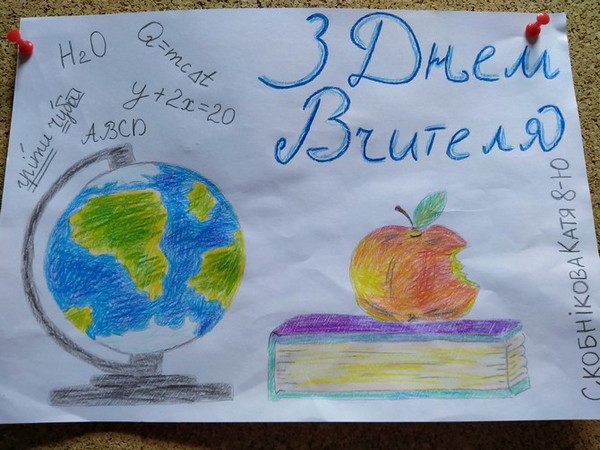 H₂O
Q=mcΔt
y+2x=20
ABCD
З Днем
Вчителя
СКОБНІКОВА КАТЯ 8-Ю